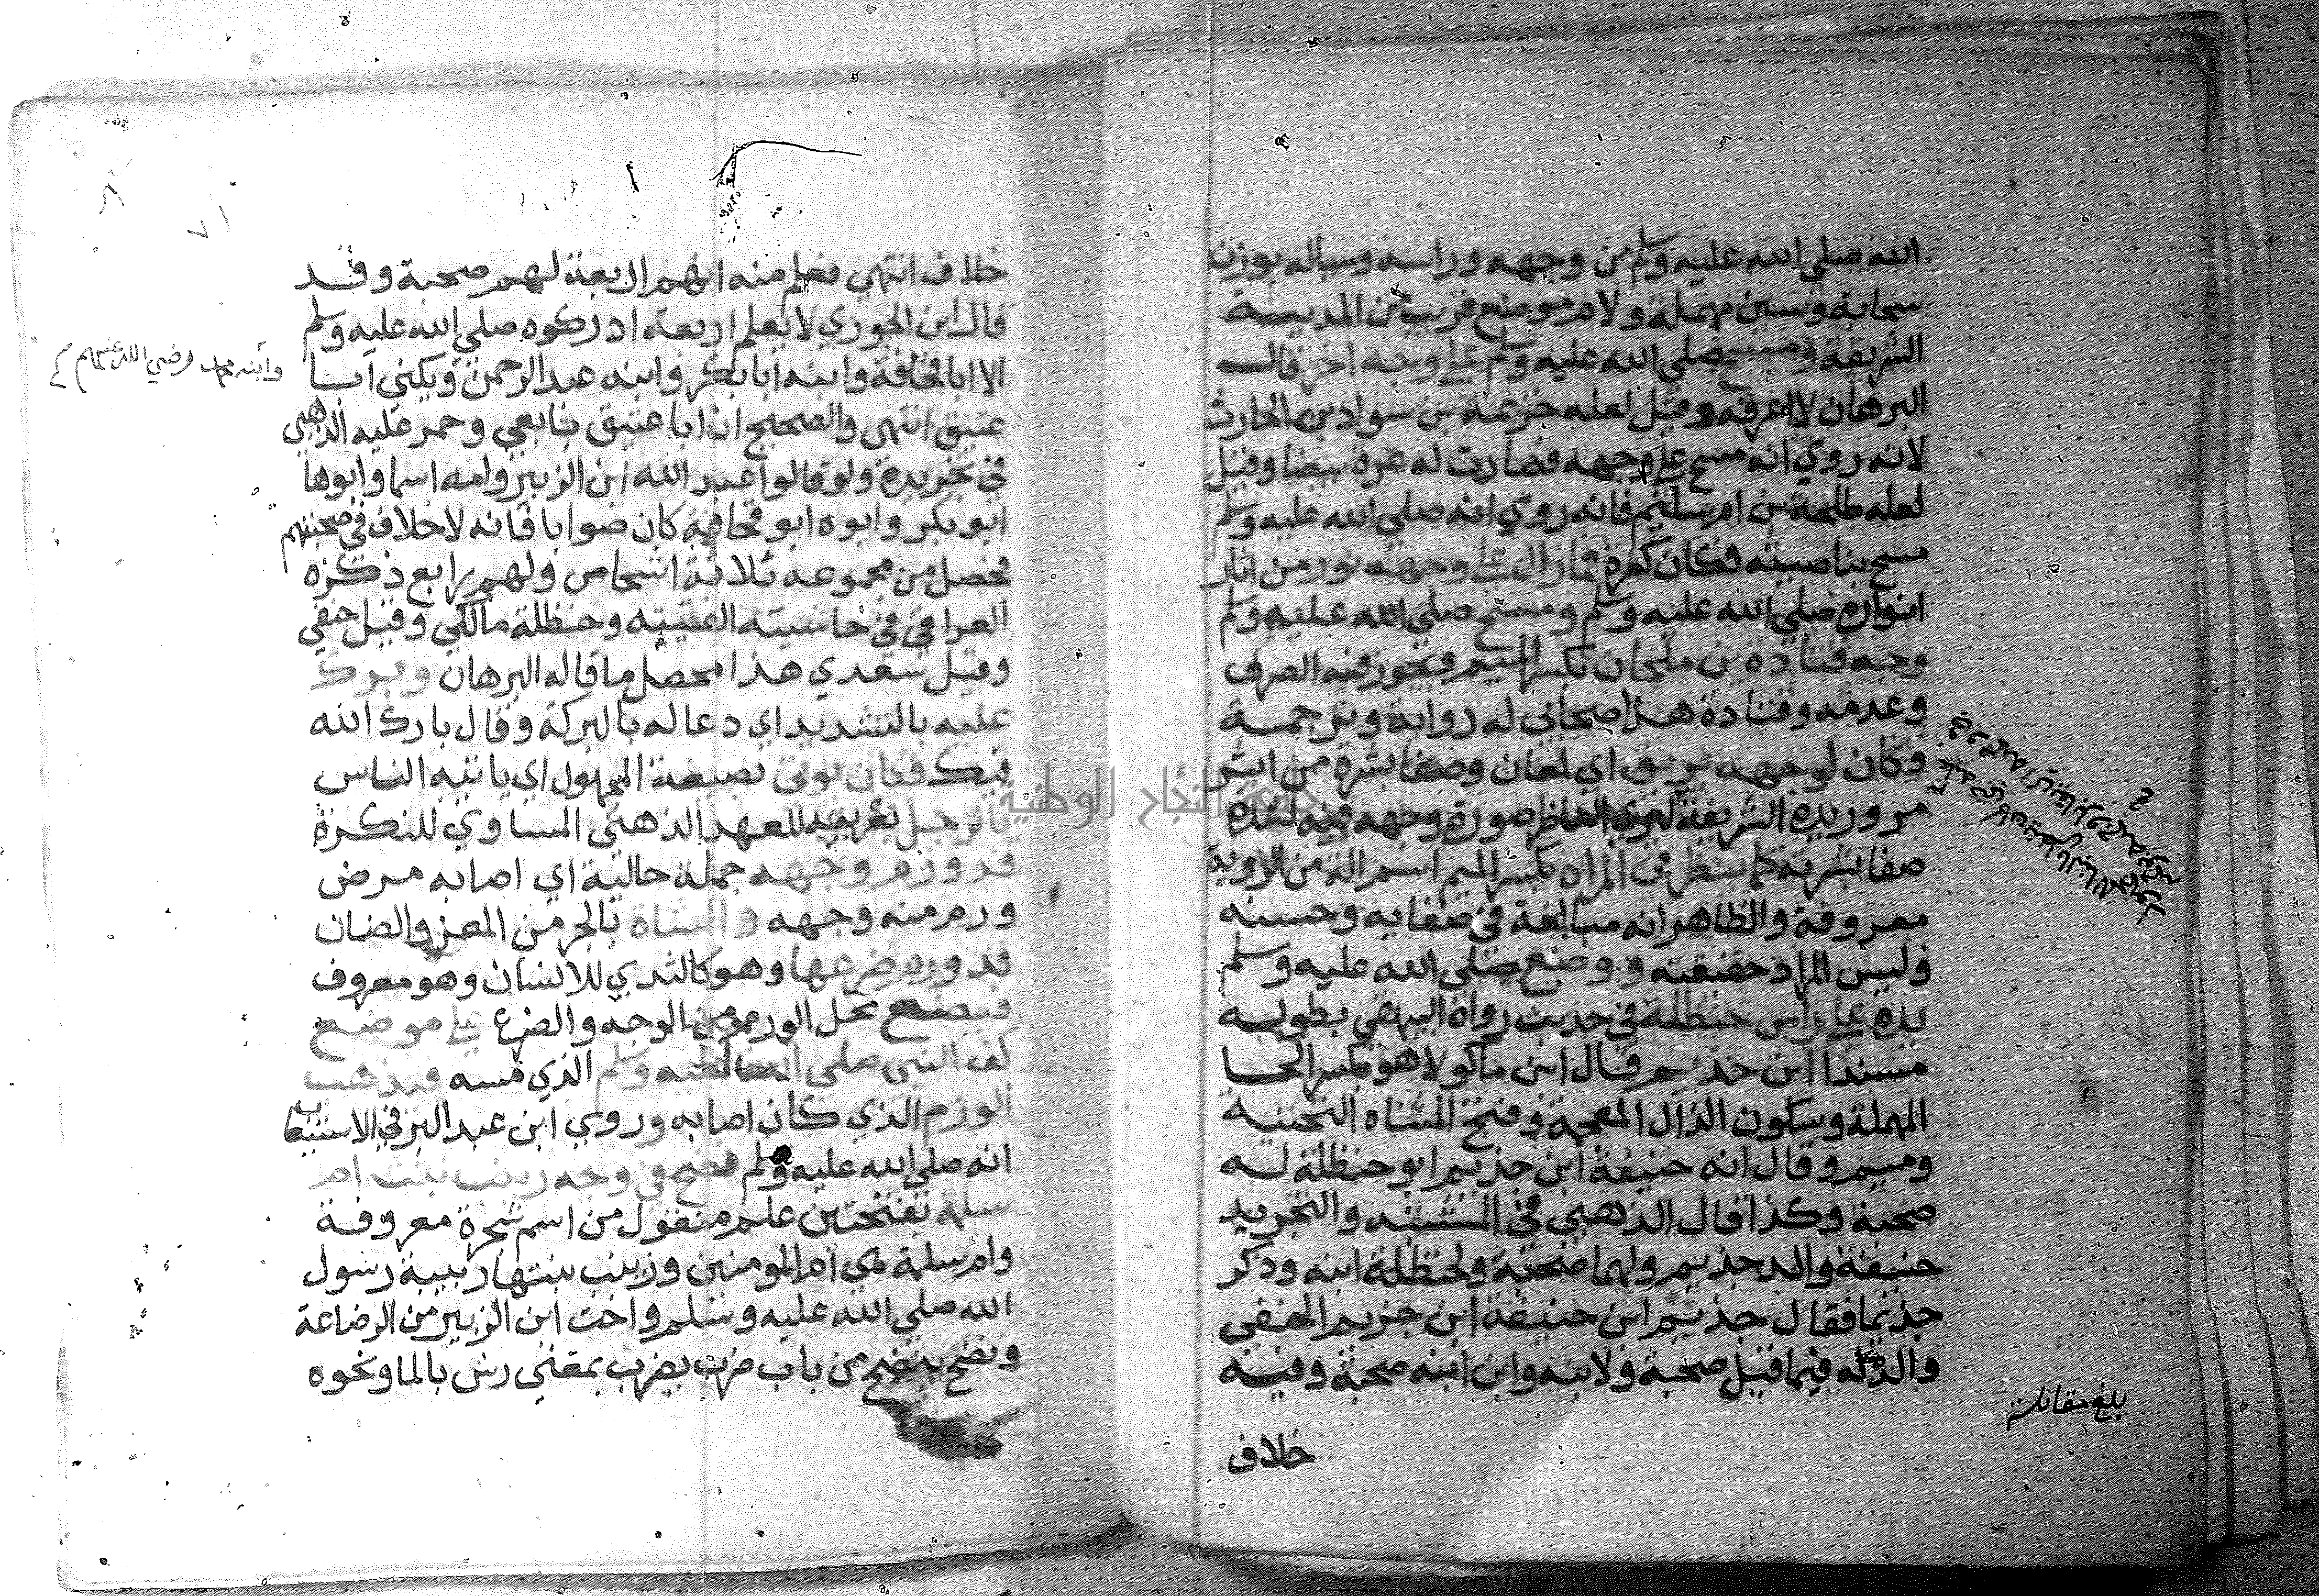 الله صلي الله عليه وسلم من وجهه وراسه وساله بوزن
سحابة وسين مهملة ولام موضع قريب من المدينة
الشريفة ومسح صلي الله عليه وسلم علي وجه اخر قال
البرهان لا اعرفه وقيل لعله خزيمة بن سواد بن الحارث
لانه روي انه مسح علي وجهه فصارت له غرة بيضا وقيل
لعله طلحة بن ام سليم فانه روي انه صلي الله عليه وسلم
مسح بناصيته فكان كغرة فما زال علي وجهه نور من اثار
انواره صلي الله عليه وسلم ومسح صلي الله عليه وسلم
وجه قتادة بن ملحان بكسر الميم ويجوز فيه الصرف
وعدمه وقتادة هذا صحابي له رواية وترجمة
وكان لوجهه بريق اي لمعان وصفا بشرة من اثر
مرور يده الشريفة صورة وجهه فيه لشدة
صفا بشرته كما ينظر في المراه بكسر الميم اسم الة من الروية
معروفة والظاهر انه مبالغة في صفايه وحسنه
وليس المراد حقيقته ووضع صلي الله عليه وسلم
يده علي راس حنظلة في حديث رواه البيهقي بطوله
مسندا ابن حذيم قال ابن ماكولا هو بكسر الحا
المهملة وسكون الذال المعجمة وفتح المثناه التحتية
وميم وقال انه حنيفة ابن حذيم ابو حنظلة له
صحبة وكذا قال الذهبي في المشتبه والتجريد
حنيفة والد حذيم ولهما صحبة ولحنظلة ابنه وذكر
حذيما فقال حذيم ابن حنيفة ابن حزيم الحنفي
والد له فيما قيل صحبة ولابنه وابن ابنه صحبة وفيه
بلغ مقابلة
خلاف
خلاف انتهي فعلم منه انهم اربعة لهم صحبة وقد
قال ابن الجوزي لا يعلم اربعة ادركوه صلي الله عليه وسلم
الا ابا قحافة وابنه ابا بكر وابنه عبد الرحمن ويكني ابا
وابنه محمد رضي الله عنهم
عتيق انتهي والصحيح ان ابا عتيق تابعي وحمر عليه الذهبي
في تجريده ولو قالوا عبد الله ابن الزبير وامه اسما وابوها
ابو بكر وابوه ابو قحافة كان صوابا فانه لا خلاف في صحبتهم
فحصل من مجموعه ثلاثة اشخاص ولهم رابع ذكره
العراقي في حاشيته وحنظلة مالكي وقيل حنفي
وقيل سعدي هذا محصل ما قاله البرهان وبرك
عليه بالتشديد اي دعا له بالبركة وقال بارك الله
فيك فكان يوتي بصيغة المجهول اي ياتيه الناس
بالرجل تعريفه للعهد الذهني المساوي للنكرة
قد ورم وجهه جملة حالية اي اصابه مرض
ورم منه وجهه والشاة بالجر من المعز والضان
قد ورم ضرعها وهو كالثدي للانسان وهو معروف
فيضع محل الورم من الوجه والضرع علي موضع
كف النبي صلي الله عليه وسلم الذي مسه فيذهب
الورم الذي كان اصابه وروي ابن عبد البر في الاستيعاب
انه صلي الله عليه وسلم نضح في وجه زينب بنت ام
سلمة بفتحتين علم منقول من اسم شجرة معروفة
وام سلمة هي ام المومنين وزينب بنتها ربيبة رسول
الله صلي الله عليه وسلم واخت ابن الزبير من الرضاعة
ونضح ينضح من باب ضرب يضرب بمعني رش بالما ونحوه